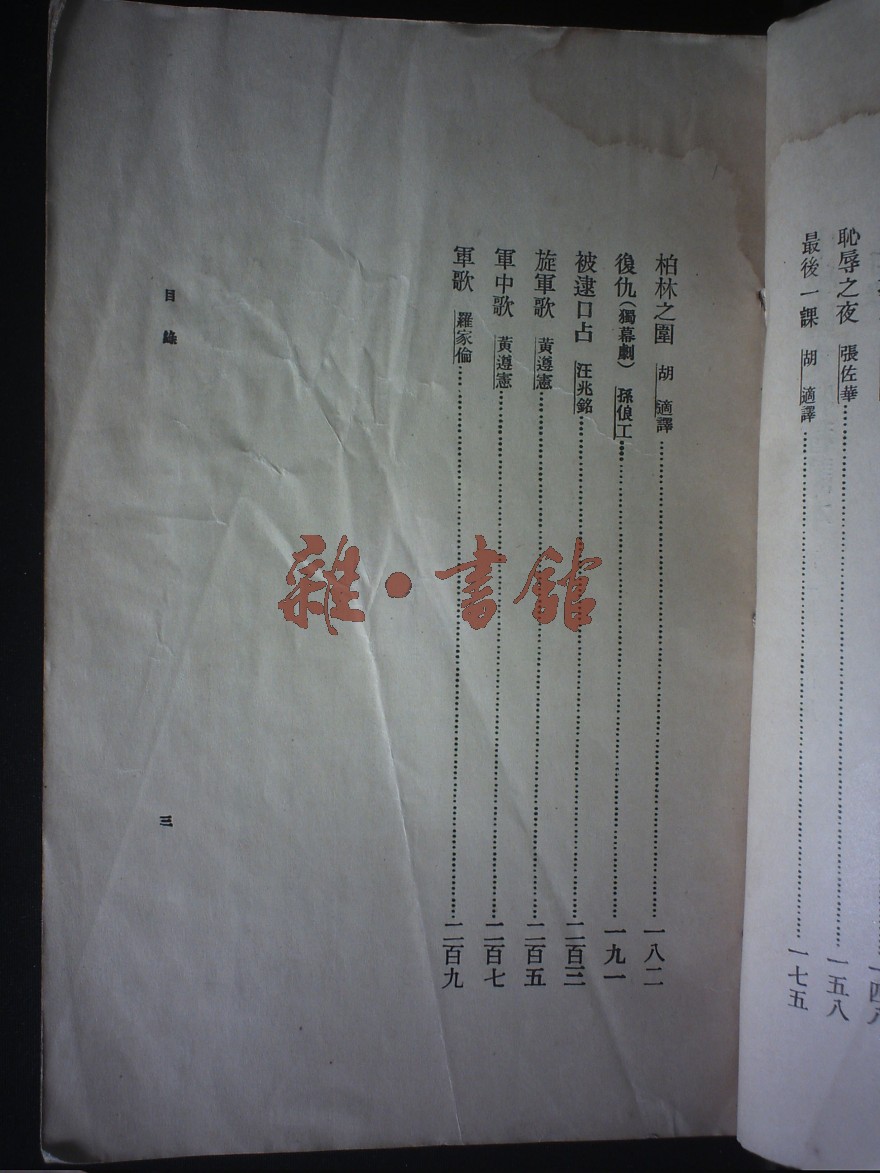 一四八
恥辱之夜 張佐華 一五八
最後一課 胡適譯 一七五
柏林之圍 胡適譯 一八二
復仇（獨幕劇） 孫俍工 一九一
被逮口占 汪兆銘 二百三
旋軍歌 黃遵憲 二百五
軍中歌 黃遵憲 二百七
軍歌 羅家倫 二百九
目錄
三
雜·書館